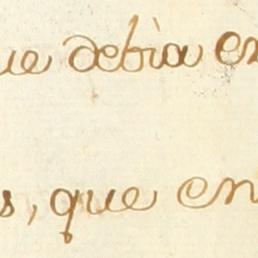 ue debia en
s, que en